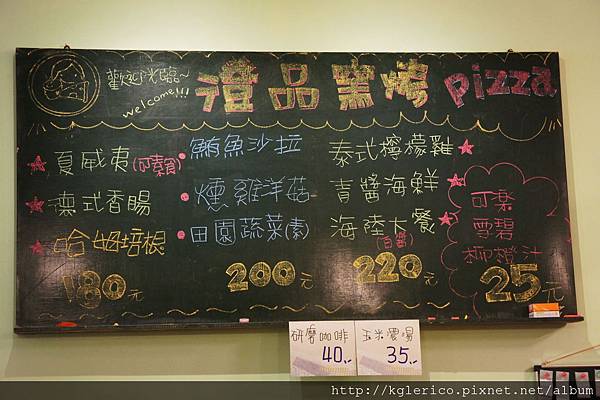 歡迎光臨~
welcome!!!
澧品窯烤pizza
夏威夷(可素食)
德式香腸
哈姆培根
180元
鮪魚沙拉
燻雞洋菇
田園蔬菜(素)
200元
泰式檸檬雞
青醬海鮮
海陸大餐
(白醬)
220元
可樂
雪碧
柳橙汁
25元
研磨咖啡
40.-
玉米濃湯
35.-
http://kglerico.pixnet.net/album